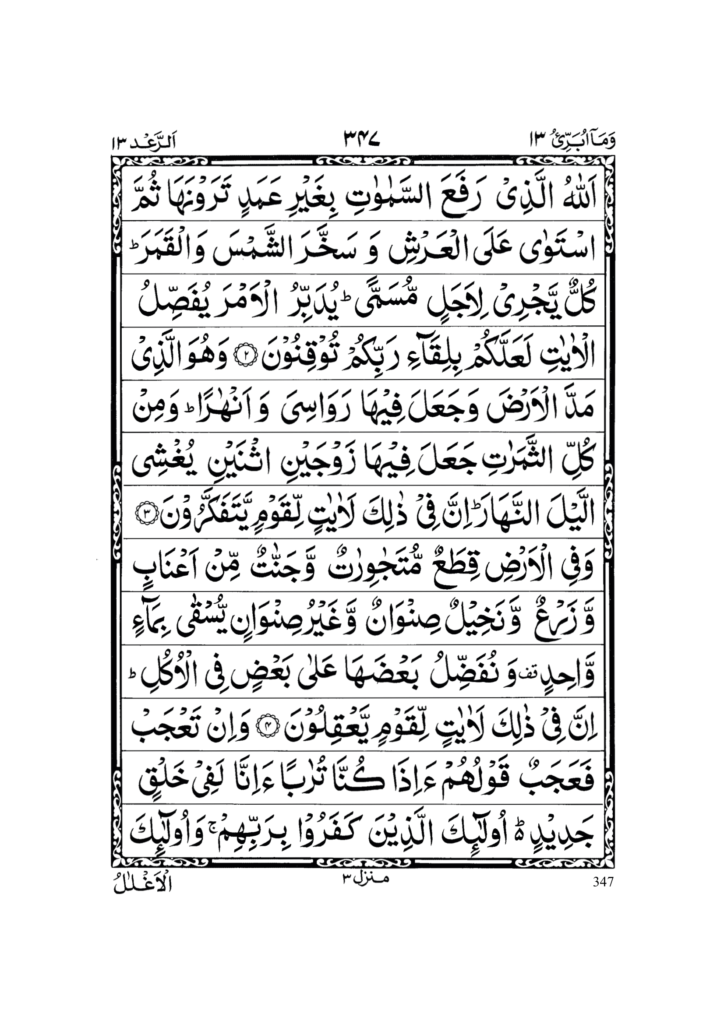 وَمَآ اُبَرِّئُ ۱۳
۳۴۷
اَلرَّعْد ۱۳
اَللّٰهُ الَّذِیْ رَفَعَ السَّمٰوٰتِ بِغَیْرِ عَمَدٍ تَرَوْنَهَا ثُمَّ
اسْتَوٰی عَلَی الْعَرْشِ وَ سَخَّرَ الشَّمْسَ وَالْقَمَرَ ؕ
کُلٌّ یَّجْرِیْ لِاَجَلٍ مُّسَمًّی ؕ یُدَبِّرُ الْاَمْرَ یُفَصِّلُ
الْاٰیٰتِ لَعَلَّکُمْ بِلِقَآءِ رَبِّکُمْ تُوْقِنُوْنَ ﴿۲﴾ وَهُوَ الَّذِیْ
مَدَّ الْاَرْضَ وَجَعَلَ فِیْهَا رَوَاسِیَ وَ اَنْهٰرًا ؕ وَمِنْ
کُلِّ الثَّمَرٰتِ جَعَلَ فِیْهَا زَوْجَیْنِ اثْنَیْنِ یُغْشِی
الَّیْلَ النَّهَارَ ؕ اِنَّ فِیْ ذٰلِكَ لَاٰیٰتٍ لِّقَوْمٍ یَّتَفَکَّرُوْنَ ﴿۳﴾
وَفِی الْاَرْضِ قِطَعٌ مُّتَجٰوِرٰتٌ وَّجَنّٰتٌ مِّنْ اَعْنَابٍ
وَّ زَرْعٌ وَّ نَخِیْلٌ صِنْوَانٌ وَّغَیْرُ صِنْوَانٍ یُّسْقٰی بِمَآءٍ
وَّاحِدٍ قف وَ نُفَضِّلُ بَعْضَهَا عَلٰی بَعْضٍ فِی الْاُکُلِ ؕ
اِنَّ فِیْ ذٰلِكَ لَاٰیٰتٍ لِّقَوْمٍ یَّعْقِلُوْنَ ﴿۴﴾ وَاِنْ تَعْجَبْ
فَعَجَبٌ قَوْلُهُمْ ءَاِذَا کُنَّا تُرٰبًا ءَاِنَّا لَفِیْ خَلْقٍ
جَدِیْدٍ ۬ؕ اُولٰٓئِكَ الَّذِیْنَ کَفَرُوْا بِرَبِّهِمْ ۚ وَاُولٰٓئِكَ
347
منزل ۳
الْاَغْلٰلُ